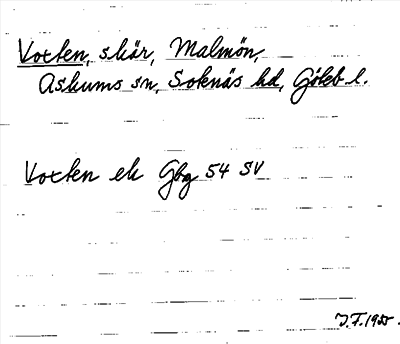 Voxten, skär, Malmön,
Askums sn, Sotenäs hd, Göteb l.
Voxten ek Gbg 54 SV
J.F. 1955.